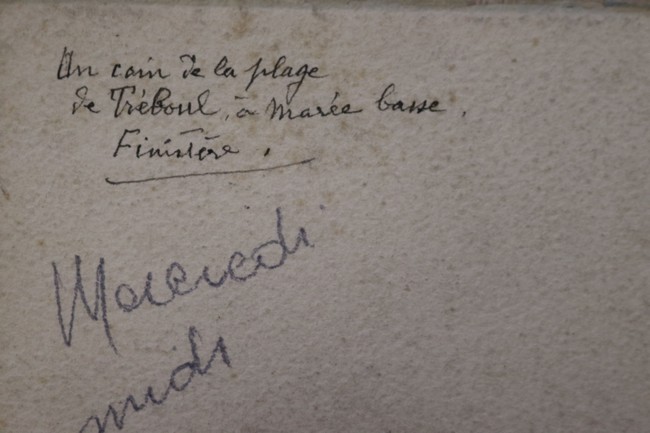 Un coin de la plage
de Tréboul, à marée basse.
Finistère.
Mercredi
midi